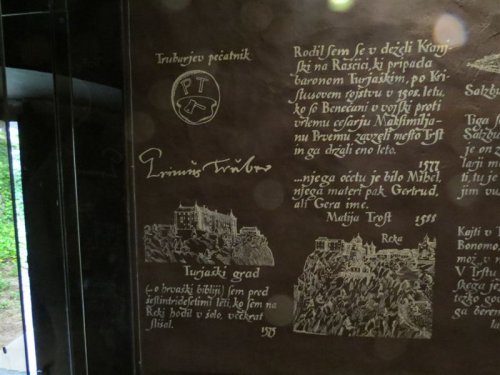 Trubarjev pečatnik
PT
Primus Truber
Turjaški grad
(..o hrvaški bibliji) sem pred
šestintridesetimi leti, ko sem na
Reki hodil v šolo, večkrat
slišal.
1575
Rodil sem se v deželi Kranj-
ski na Raščici, ki pripada
baronom Turjaškim, po Kri-
stusovem rojstvu v 1508. letu,
ko so Benečani v vojski proti
vrlemu cesarju Maksimilja-
nu Prvemu zavzeli mesto Trst
in ga držali eno leto.
1577
...njega očetu je bilo Mihel,
njega materi pak Gertrud,
ali Gera ime.
Matija Trost 1588
Reka
Salzbu
Tiga s
Salzbu
je on z
larji m
ti, tu je
jim vu
Kajti v T
Bonomo,
mož v n
V Trstu
skega je
težko go
ga beren